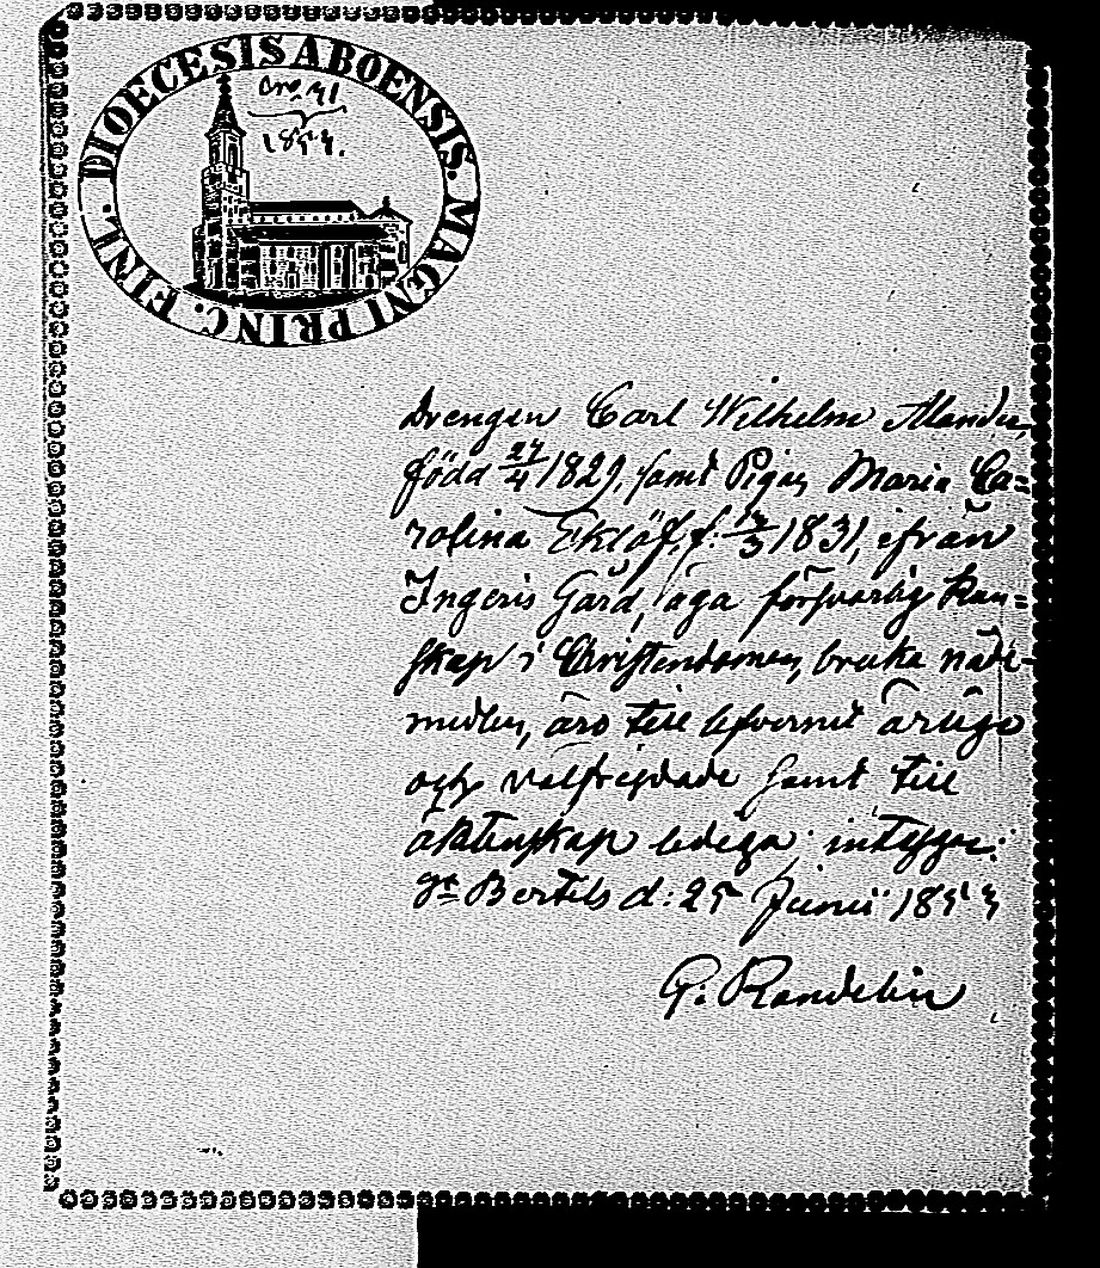 DIOECESIS ABOENSIS. MAGNI PRINC. FINL.
No. 41
1854.
Drengen Carl Wilhelm
född 27/4 1829, samt Pigan Maria Ca=
rolina Eklöf, f: /3 1831, ifrån
Ingeris Gård, äga försvarlig kun=
skap i Christendomen, bruka nåde-
medlen, äro till lefvernet ärlige
och välfrejdade samt till
äktenskap lediga; intygar:
St Bertils d: 25 Junii 1854
G: Randelin